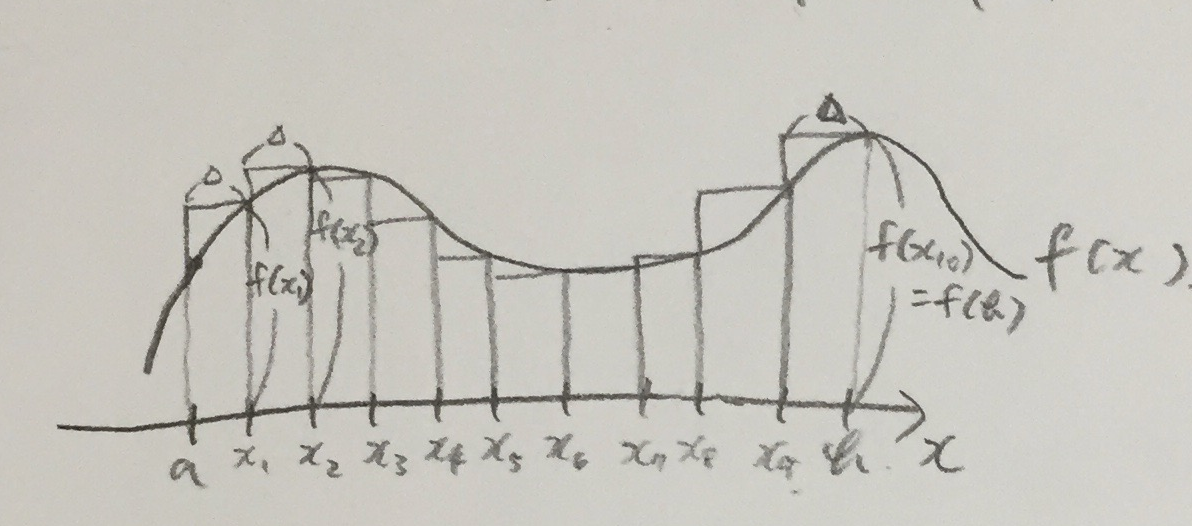 Δ
Δ
Δ
f(x₂)
f(x₁)
f(x₁₀)
=f(b)
f(x)
a x₁ x₂ x₃ x₄ x₅ x₆ x₇ x₈ x₉ b x